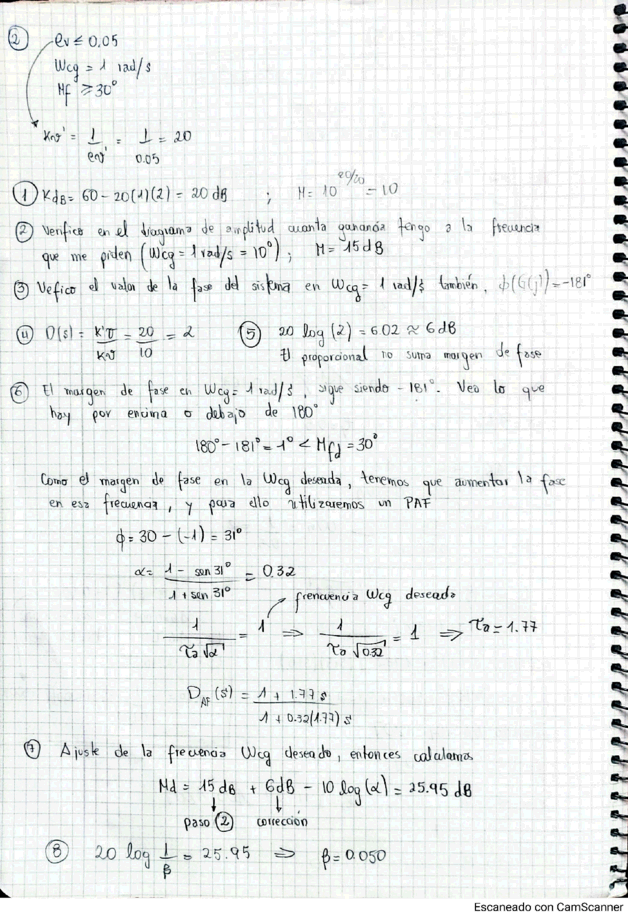 ② ev ≤ 0,05
Wcg = 1 rad/s
Mf ≥ 30°
Kv' = 1/ev' = 1/0.05 = 20
① KdB = 60 - 20(1)(2) = 20 dB ; M = 10^20/20 = 10
② Verifico en el diagrama de amplitud cuanta ganancia tengo a la frecuencia
que me piden (Wcg = 1 rad/s = 10°) ; M = 15 dB
③ Vefico el valor de la fase del sistema en Wcg = 1 rad/s también, ϕ(G(j)) = -181°
④ D(s) = K'v/Kv = 20/10 = 2 ⑤ 20 log(2) = 6.02 ≈ 6 dB
El proporcional no suma margen de fase
⑥ El margen de fase en Wcg = 1 rad/s, sigue siendo -181°. Veo lo que
hay por encima o debajo de 180°
180° - 181° = -1° < Mfd = 30°
Como el margen de fase en la Wcg deseada, tenemos que aumentar la fase
en esa frecuencia, y para ello utilizaremos un PAF
ϕ = 30 - (-1) = 31°
α = (1 - sen 31°)/(1 + sen 31°) = 0.32
frencuencia Wcg deseada
1/(τa √α) = 1 ⇒ 1/(τa √0.32) = 1 ⇒ τa = 1.77
DAF(s) = (1 + 1.77s)/(1 + 0.32(1.77)s)
⑦ Ajuste de la frecuencia Wcg deseado, entonces calculamos
Md = 15 dB + 6dB - 10 log(α) = 25.95 dB
paso ② corrección
⑧ 20 log 1/β = 25.95 ⇒ β = 0.050
Escaneado con CamScanner